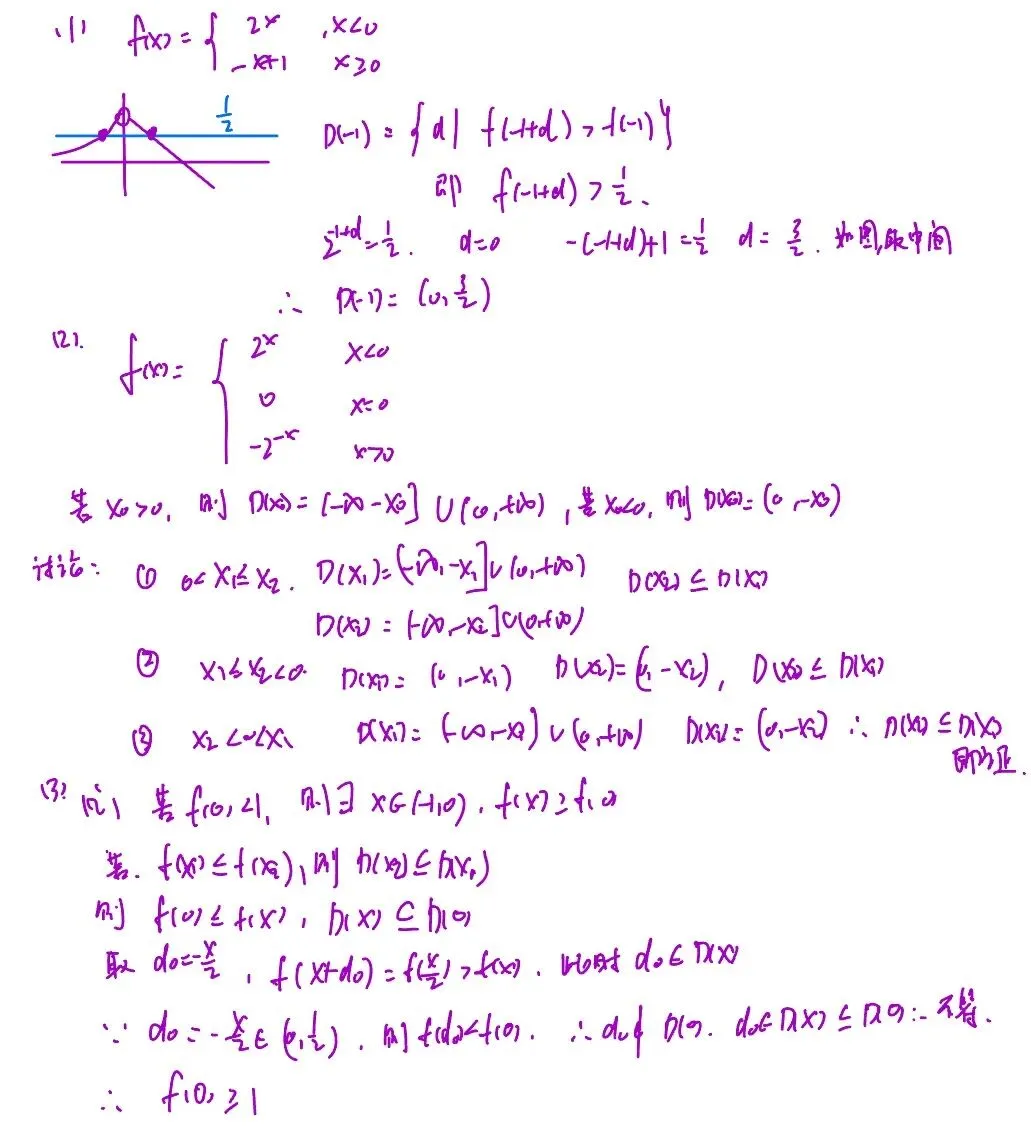 (1) f(x) = { 2^x , x<0
-x+1 x≥0
1/2
D(-1) = {d | f(-1+d) > f(-1)}
即 f(-1+d) > 1/2.
2^{-1+d} = 1/2. d=0 -(-1+d)+1 = 1/2 d = 3/2. 如图,取中间
∴ D(-1) = (0, 3/2)
(2). f(x) = { 2^x x<0
0 x=0
-2^{-x} x>0
若 x₀>0, 则 D(x₀) = (-∞ -x₀] ∪ (0,+∞), 若 x₀<0, 则 D(x₀) = (0 ,-x₀)
讨论: ① 0< x₁ ≤ x₂. D(x₁) = (-∞, -x₁] ∪ (0,+∞) D(x₂) ⊆ D(x₁)
D(x₂) = (-∞, -x₂] ∪ (0+∞)
② x₁ ≤ x₂ <0. D(x₁) = (0, -x₁) D(x₂) = (0, -x₂), D(x₂) ⊆ D(x₁)
③ x₂ <0< x₁ D(x₁) = (-∞, -x₁] ∪ (0,+∞) D(x₂) = (0, -x₂) ∴ D(x₂) ⊆ D(x₁)
即证.
(3) 若 f(0)<1, 则 ∃ x∈(-1,0), f(x) ≥ f(0)
若. f(x₁) ≤ f(x₂), 则 D(x₂) ⊆ D(x₁)
则 f(0) ≤ f(x), D(x) ⊆ D(0)
取 d₀ = -x/2, f(x+d₀) = f(x/2) > f(x). 此时 d₀ ∈ D(x)
∵ d₀ = -x/2 ∈ (0, 1/2). 则 f(d₀) < f(0). ∴ d₀ ∉ D(0). d₀ ∈ D(x) ⊆ D(0) ∴ 不符.
∴ f(0) ≥ 1